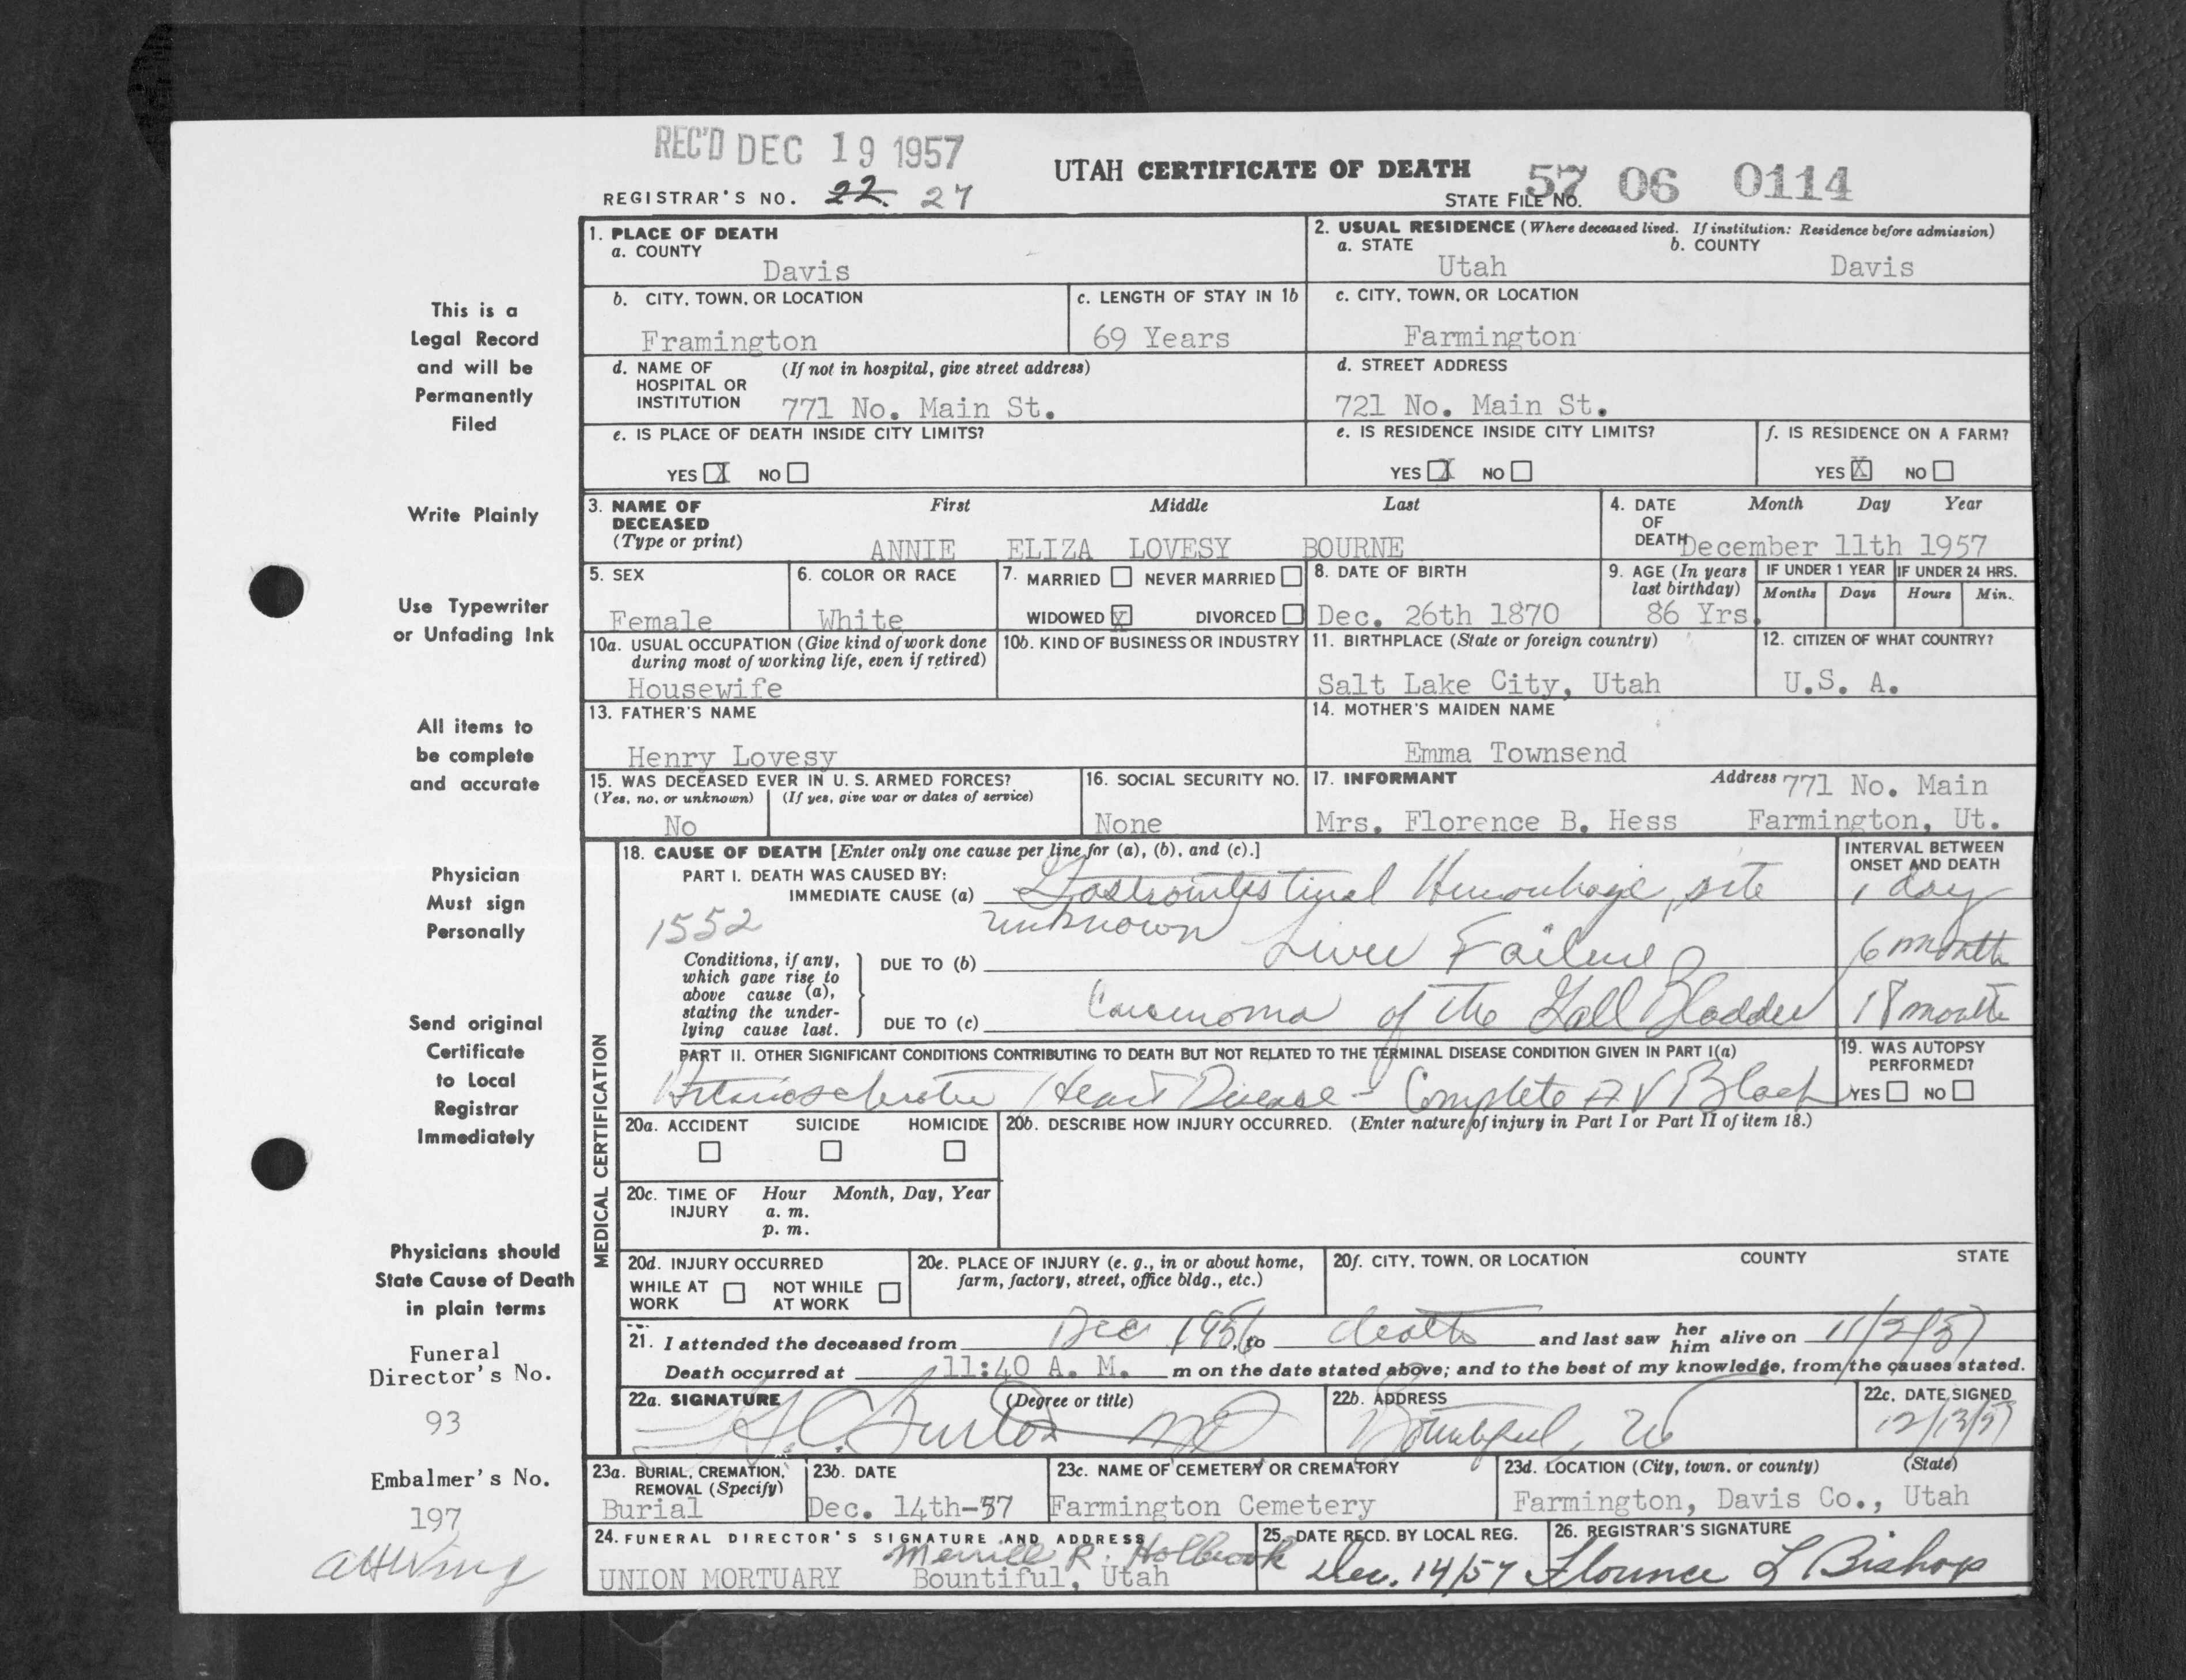 REC'D DEC 19 1957
UTAH CERTIFICATE OF DEATH
57 06 0114
REGISTRAR'S NO. 22. 27
STATE FILE NO.
This is a
Legal Record
and will be
Permanently
Filed
Write Plainly
Use Typewriter
or Unfading Ink
All items to
be complete
and accurate
Physician
Must sign
Personally
Send original
Certificate
to Local
Registrar
Immediately
Physicians should
State Cause of Death
in plain terms
Funeral
Director's No.
93
Embalmer's No.
197
1. PLACE OF DEATH
a. COUNTY
Davis
2. USUAL RESIDENCE (Where deceased lived. If institution: Residence before admission)
a. STATE b. COUNTY
Utah Davis
b. CITY, TOWN, OR LOCATION
Framington
c. LENGTH OF STAY IN 1b
69 Years
c. CITY, TOWN, OR LOCATION
Farmington
d. NAME OF (If not in hospital, give street address)
HOSPITAL OR
INSTITUTION 771 No. Main St.
d. STREET ADDRESS
721 No. Main St.
e. IS PLACE OF DEATH INSIDE CITY LIMITS?
YES X NO
e. IS RESIDENCE INSIDE CITY LIMITS?
YES X NO
f. IS RESIDENCE ON A FARM?
YES X NO
3. NAME OF First Middle Last
DECEASED
(Type or print) ANNIE ELIZA LOVESY BOURNE
4. DATE Month Day Year
OF
DEATH December 11th 1957
5. SEX
Female
6. COLOR OR RACE
White
7. MARRIED NEVER MARRIED
WIDOWED X DIVORCED
8. DATE OF BIRTH
Dec. 26th 1870
9. AGE (In years
last birthday)
86 Yrs.
IF UNDER 1 YEAR IF UNDER 24 HRS.
Months Days Hours Min.
10a. USUAL OCCUPATION (Give kind of work done
during most of working life, even if retired)
Housewife
10b. KIND OF BUSINESS OR INDUSTRY
11. BIRTHPLACE (State or foreign country)
Salt Lake City, Utah
12. CITIZEN OF WHAT COUNTRY?
U.S. A.
13. FATHER'S NAME
Henry Lovesy
14. MOTHER'S MAIDEN NAME
Emma Townsend
15. WAS DECEASED EVER IN U. S. ARMED FORCES?
(Yes, no, or unknown) (If yes, give war or dates of service)
No
16. SOCIAL SECURITY NO.
None
17. INFORMANT Address 771 No. Main
Mrs. Florence B. Hess Farmington, Ut.
MEDICAL CERTIFICATION
18. CAUSE OF DEATH [Enter only one cause per line for (a), (b), and (c).]
INTERVAL BETWEEN
ONSET AND DEATH
PART I. DEATH WAS CAUSED BY:
IMMEDIATE CAUSE (a) Gastrointestinal Hemorrhage, site 1 day
1552 unknown
Conditions, if any,
which gave rise to
above cause (a),
stating the under-
lying cause last.
DUE TO (b) Liver Failure 6 month
DUE TO (c) Carcinoma of the Gall Bladder 18 month
PART II. OTHER SIGNIFICANT CONDITIONS CONTRIBUTING TO DEATH BUT NOT RELATED TO THE TERMINAL DISEASE CONDITION GIVEN IN PART I(a)
Arteriosclerotic Heart Disease - Complete A V Block
19. WAS AUTOPSY
PERFORMED?
YES NO
20a. ACCIDENT SUICIDE HOMICIDE
20b. DESCRIBE HOW INJURY OCCURRED. (Enter nature of injury in Part I or Part II of item 18.)
20c. TIME OF Hour Month, Day, Year
INJURY a. m.
p. m.
20d. INJURY OCCURRED
WHILE AT NOT WHILE
WORK AT WORK
20e. PLACE OF INJURY (e. g., in or about home,
farm, factory, street, office bldg., etc.)
20f. CITY, TOWN, OR LOCATION COUNTY STATE
21. I attended the deceased from Dec 1956, to death and last saw her him alive on 11/2/57
Death occurred at 11:40 A. M. m on the date stated above; and to the best of my knowledge, from the causes stated.
22a. SIGNATURE (Degree or title)
MD
22b. ADDRESS
Bountiful, Ut
22c. DATE SIGNED
12/13/57
23a. BURIAL, CREMATION,
REMOVAL (Specify)
Burial
23b. DATE
Dec. 14th-57
23c. NAME OF CEMETERY OR CREMATORY
Farmington Cemetery
23d. LOCATION (City, town, or county) (State)
Farmington, Davis Co., Utah
24. FUNERAL DIRECTOR'S SIGNATURE AND ADDRESS
Merrill R. Holbrook
UNION MORTUARY Bountiful, Utah
25. DATE RECD. BY LOCAL REG.
Dec. 14/57
26. REGISTRAR'S SIGNATURE
Florence L Bishop